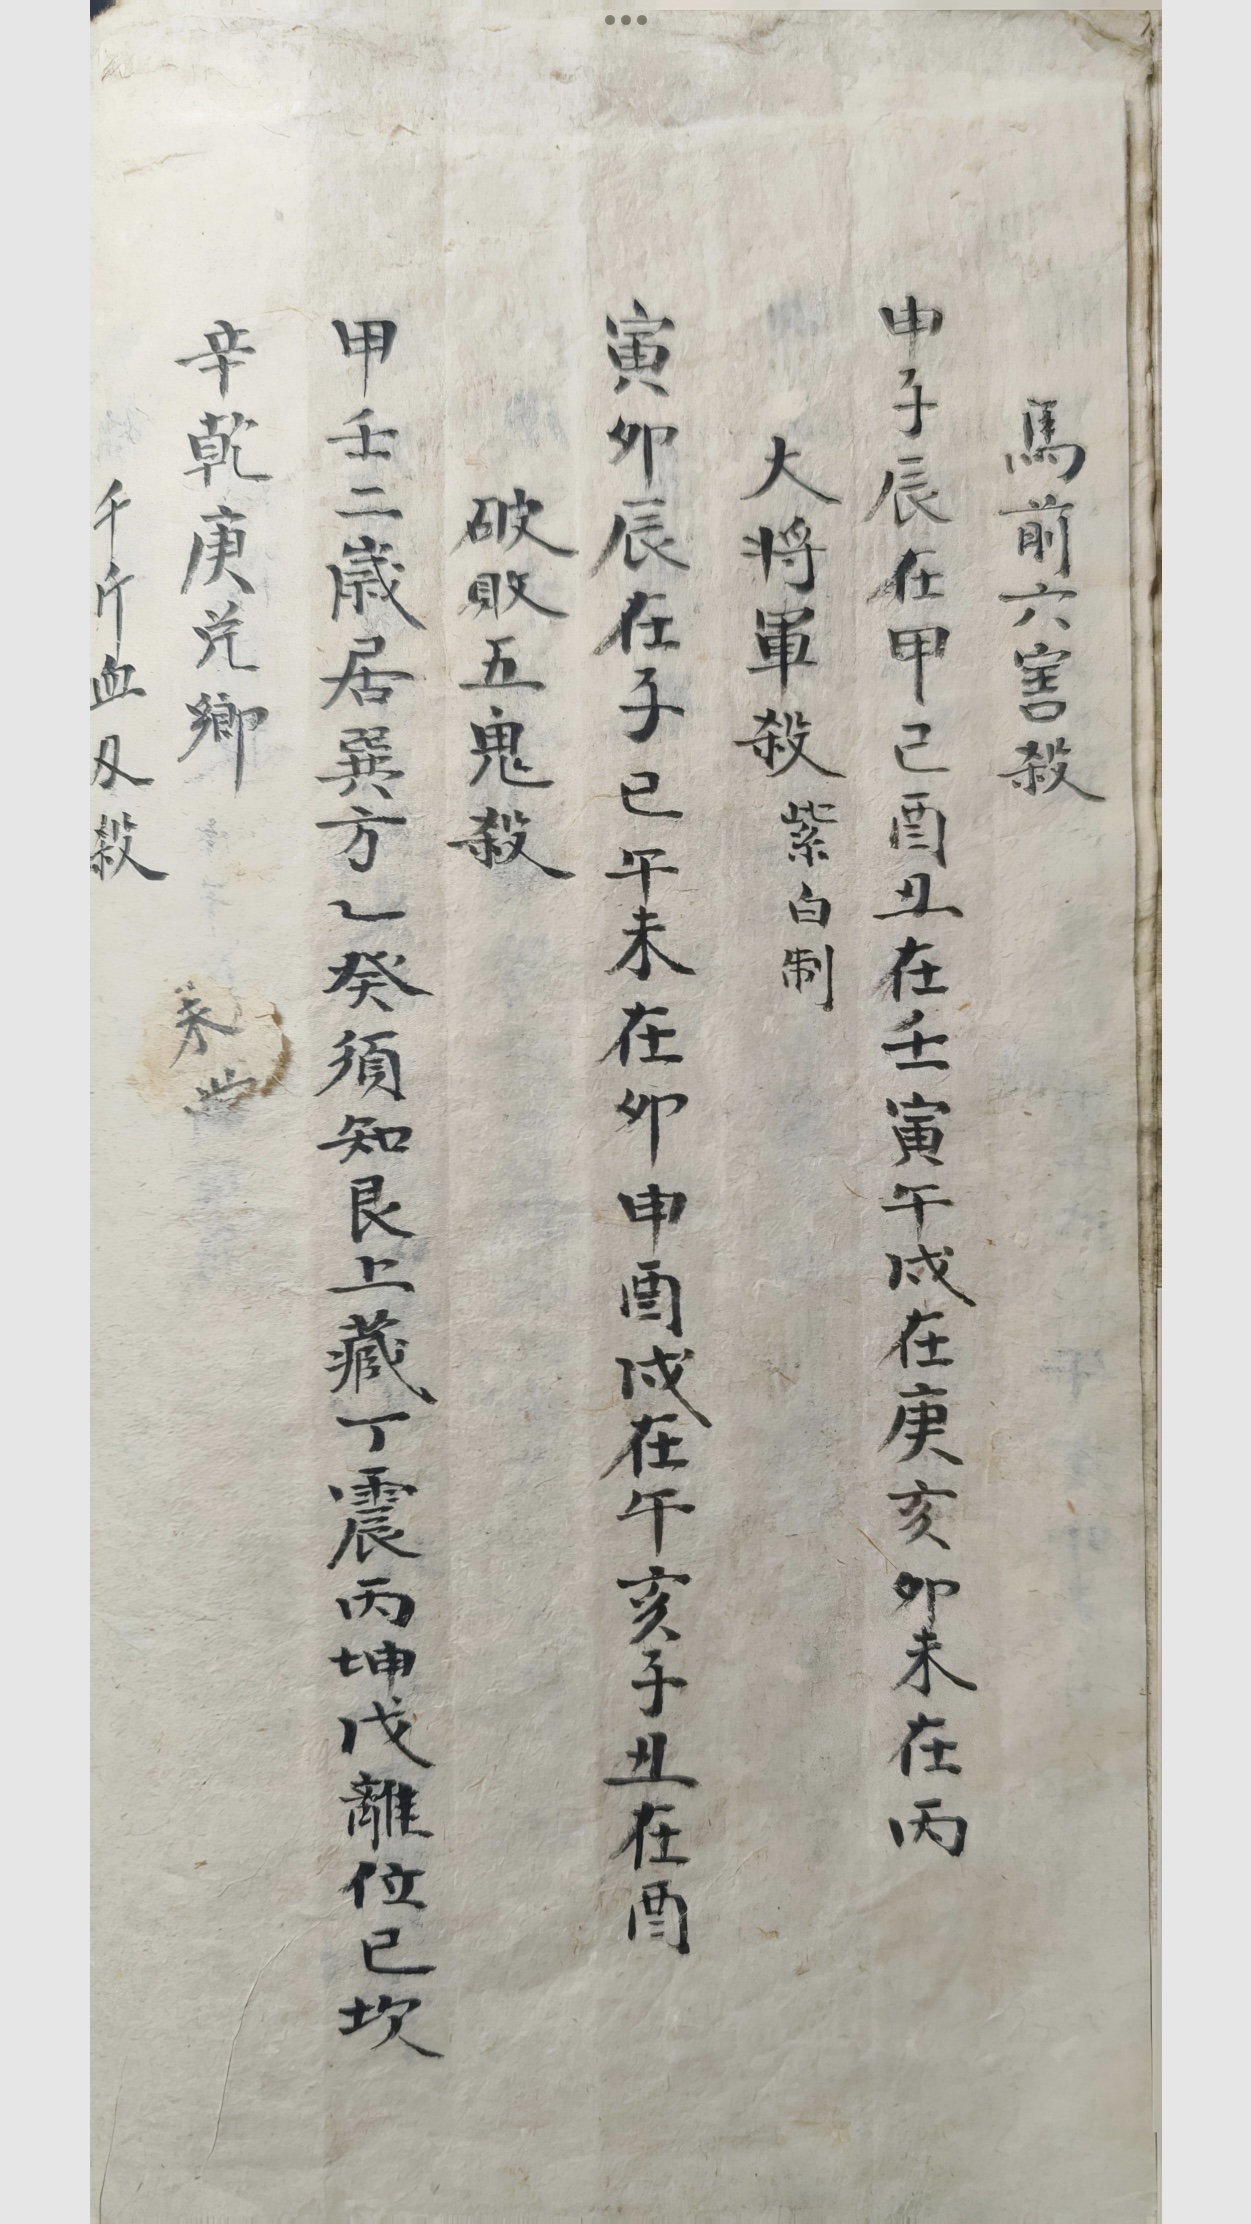 馬前六害殺
申子辰在甲巳酉丑在壬寅午戌在庚亥卯未在丙
大将軍殺紫白制
寅卯辰在子巳午未在卯申酉戌在午亥子丑在酉
破敗五鬼殺
甲壬二歳居巽方乙癸須知艮上藏丁震丙坤戊離位已坎
辛乾庚兊鄉
千斤血刄殺